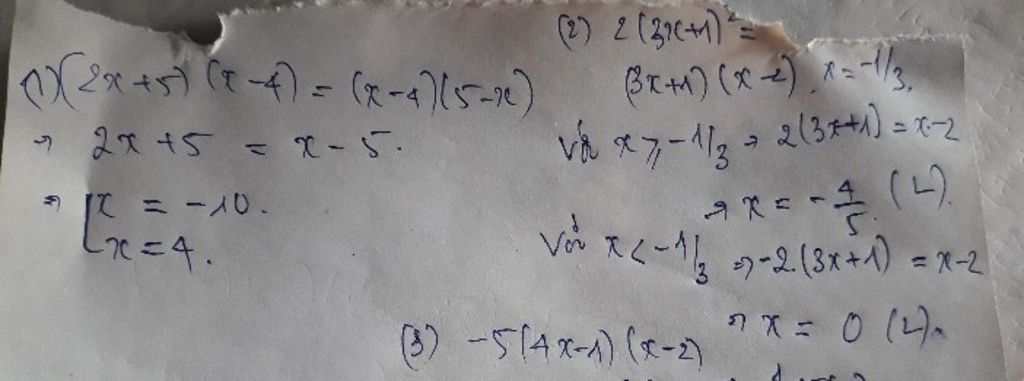 (1) (2x+5) (x-4) = (x-4)(5-x)
→ 2x+5 = x-5.
⇒ [x = -10.
x = 4.
(2) 2(3x+1)² =
(3x+1)(x-2). x = -1/3.
Với x ≥ -1/3 → 2(3x+1) = x-2
⇒ x = -4/5. (L).
Với x < -1/3 ⇒ -2.(3x+1) = x-2
⇒ x = 0 (L).
(3) -5(4x-1)(x-2)